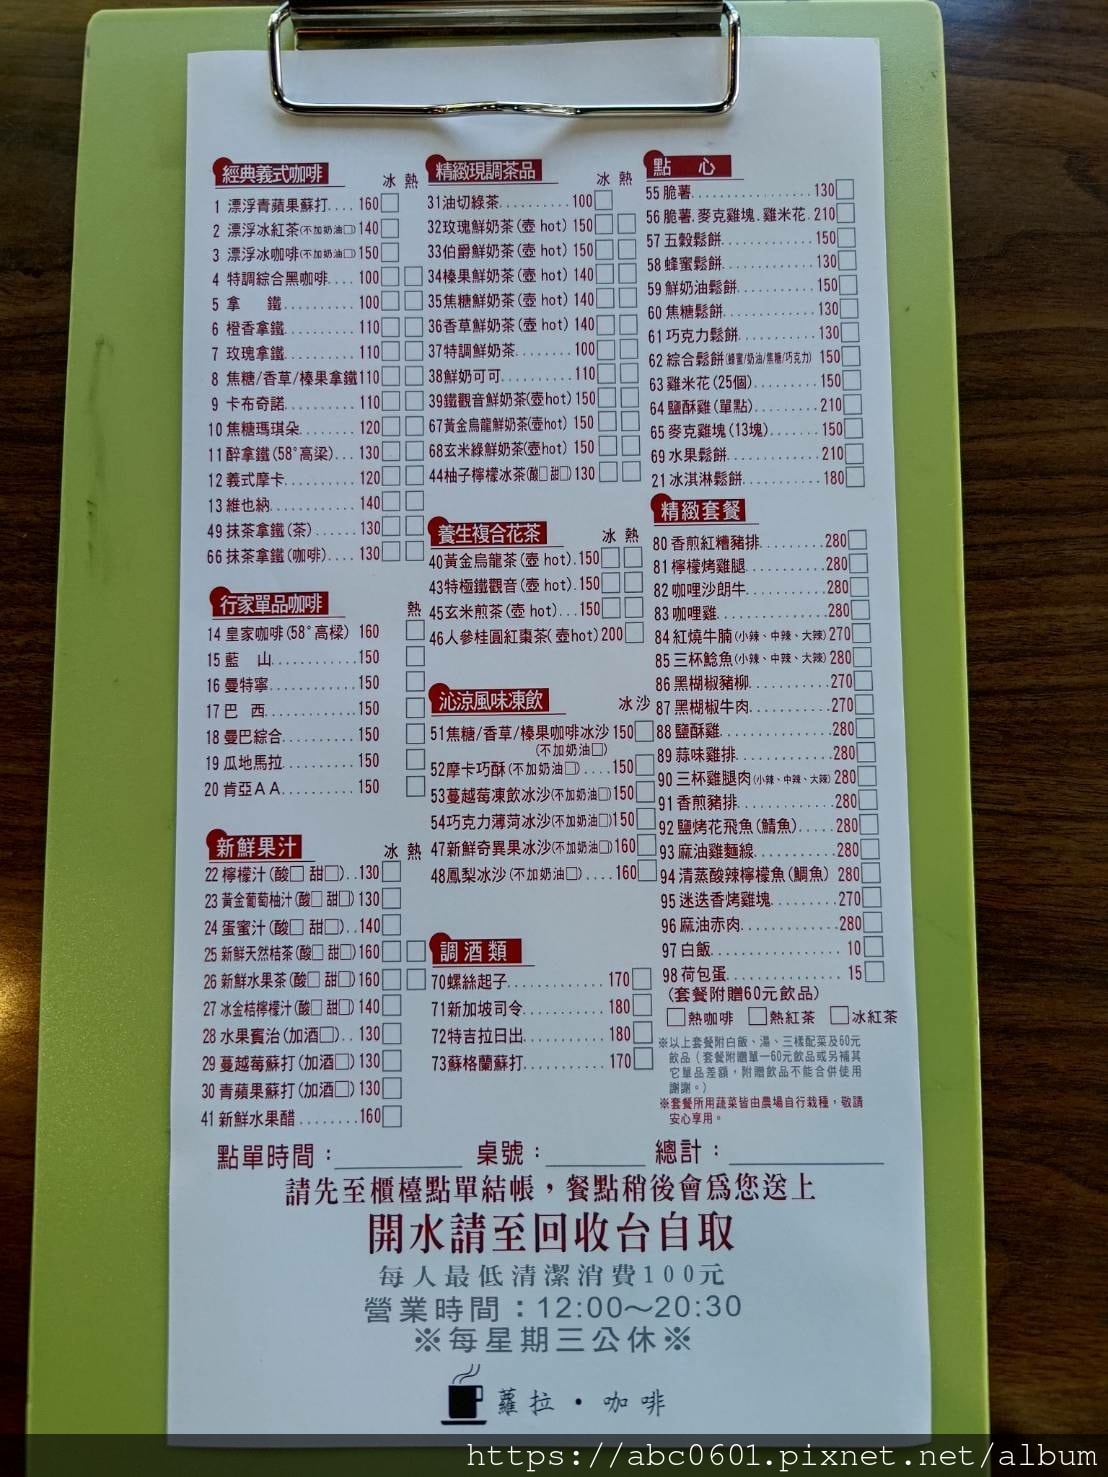 經典義式咖啡 冰 熱
1 漂浮青蘋果蘇打.... 160□
2 漂浮冰紅茶(不加奶油□) 140□
3 漂浮冰咖啡(不加奶油□) 150□
4 特調綜合黑咖啡.... 100□□
5 拿 鐵............ 100□□
6 橙香拿鐵.......... 110□□
7 玫瑰拿鐵.......... 110□□
8 焦糖/香草/榛果拿鐵110□□
9 卡布奇諾.......... 110□□
10 焦糖瑪琪朵........ 120□□
11 醉拿鐵(58°高梁)... 130□□
12 義式摩卡.......... 120□□
13 維也納............ 140□□
49 抹茶拿鐵(茶)...... 130□□
66 抹茶拿鐵(咖啡).... 130□□
行家單品咖啡 熱
14 皇家咖啡(58°高樑) 160 □
15 藍 山............ 150 □
16 曼特寧............ 150 □
17 巴 西............ 150 □
18 曼巴綜合.......... 150 □
19 瓜地馬拉.......... 150 □
20 肯亞AA.......... 150 □
新鮮果汁 冰 熱
22 檸檬汁(酸□ 甜□)..130□
23 黃金葡萄柚汁(酸□ 甜□) 130□
24 蛋蜜汁(酸□ 甜□)..140□
25 新鮮天然桔茶(酸□ 甜□)160□□
26 新鮮水果茶(酸□ 甜□)160□□
27 冰金桔檸檬汁(酸□ 甜□) 140□
28 水果賓治(加酒□)... 130□
29 蔓越莓蘇打(加酒□)130□
30 青蘋果蘇打(加酒□)130□
41 新鮮水果醋........ 160□
精緻現調茶品 冰 熱
31油切綠茶.......... 100□
32玫瑰鮮奶茶(壺 hot) 150□□
33伯爵鮮奶茶(壺 hot) 150□□
34榛果鮮奶茶(壺 hot) 140□□
35焦糖鮮奶茶(壺 hot) 140□□
36香草鮮奶茶(壺 hot) 140□□
37特調鮮奶茶........ 100□□
38鮮奶可可.......... 110□□
39鐵觀音鮮奶茶(壺hot) 150□□
67黃金烏龍鮮奶茶(壺hot) 150□□
68玄米綠鮮奶茶(壺hot) 150□□
44柚子檸檬冰茶(酸□ 甜□)130□□
養生複合花茶 冰 熱
40黃金烏龍茶(壺 hot).150□□
43特極鐵觀音(壺 hot) 150□□
45玄米煎茶(壺 hot)... 150□□
46人參桂圓紅棗茶( 壺hot)200□
沁涼風味凍飲 冰沙
51焦糖/香草/榛果咖啡冰沙 150□
(不加奶油□)
52摩卡巧酥(不加奶油□)....150□
53蔓越莓凍飲冰沙(不加奶油□)150□
54巧克力薄菏冰沙(不加奶油□)150□
47新鮮奇異果冰沙(不加奶油□)160□
48鳳梨冰沙(不加奶油□)....160□
調酒類
70螺絲起子............ 170□
71新加坡司令.......... 180□
72特吉拉日出.......... 180□
73蘇格蘭蘇打.......... 170□
點 心
55 脆薯............... 130□
56 脆薯.麥克雞塊.雞米花.210□
57 五穀鬆餅............ 150□
58 蜂蜜鬆餅............ 130□
59 鮮奶油鬆餅.......... 150□
60 焦糖鬆餅............ 130□
61 巧克力鬆餅.......... 130□
62 綜合鬆餅(蜂蜜/奶油/焦糖/巧克力) 150□
63 雞米花(25個)........ 150□
64 鹽酥雞(單點)........ 210□
65 麥克雞塊(13塊)...... 150□
69 水果鬆餅............ 210□
21 冰淇淋鬆餅.......... 180□
精緻套餐
80 香煎紅糟豬排........280□
81 檸檬烤雞腿..........280□
82 咖哩沙朗牛..........280□
83 咖哩雞..............280□
84 紅燒牛腩(小辣、中辣、大辣)270□
85 三杯鯰魚(小辣、中辣、大辣)280□
86 黑糊椒豬柳..........270□
87 黑糊椒牛肉..........270□
88 鹽酥雞..............280□
89 蒜味雞排............280□
90 三杯雞腿肉(小辣、中辣、大辣)280□
91 香煎豬排............280□
92 鹽烤花飛魚(鯖魚).....280□
93 麻油雞麵線..........280□
94 清蒸酸辣檸檬魚(鯛魚) 280□
95 迷迭香烤雞塊........270□
96 麻油赤肉............280□
97 白飯................ 10□
98 荷包蛋.............. 15□
(套餐附贈60元飲品)
□熱咖啡 □熱紅茶 □冰紅茶
※以上套餐附白飯、湯、三樣配菜及60元
飲品(套餐附贈單一60元飲品或另補其
它單品差額,附贈飲品不能合併使用
謝謝。)
※套餐所用蔬菜皆由農場自行栽種,敬請
安心享用。
點單時間:________ 桌號:______ 總計:_________
請先至櫃檯點單結帳,餐點稍後會為您送上
開水請至回收台自取
每人最低清潔消費100元
營業時間:12:00~20:30
※每星期三公休※
蘿拉・咖啡
https://abc0601.pixnet.net/album